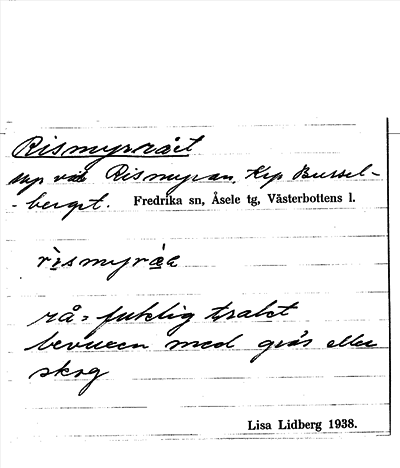 Rismyrrået
skp väl Rismyran, Krp Bussel-
-berget. Fredrika sn, Åsele tg, Västerbottens l.
rismyråa
rå = fuktig trakt
bevuxen med gräs eller
skog
Lisa Lidberg 1938.